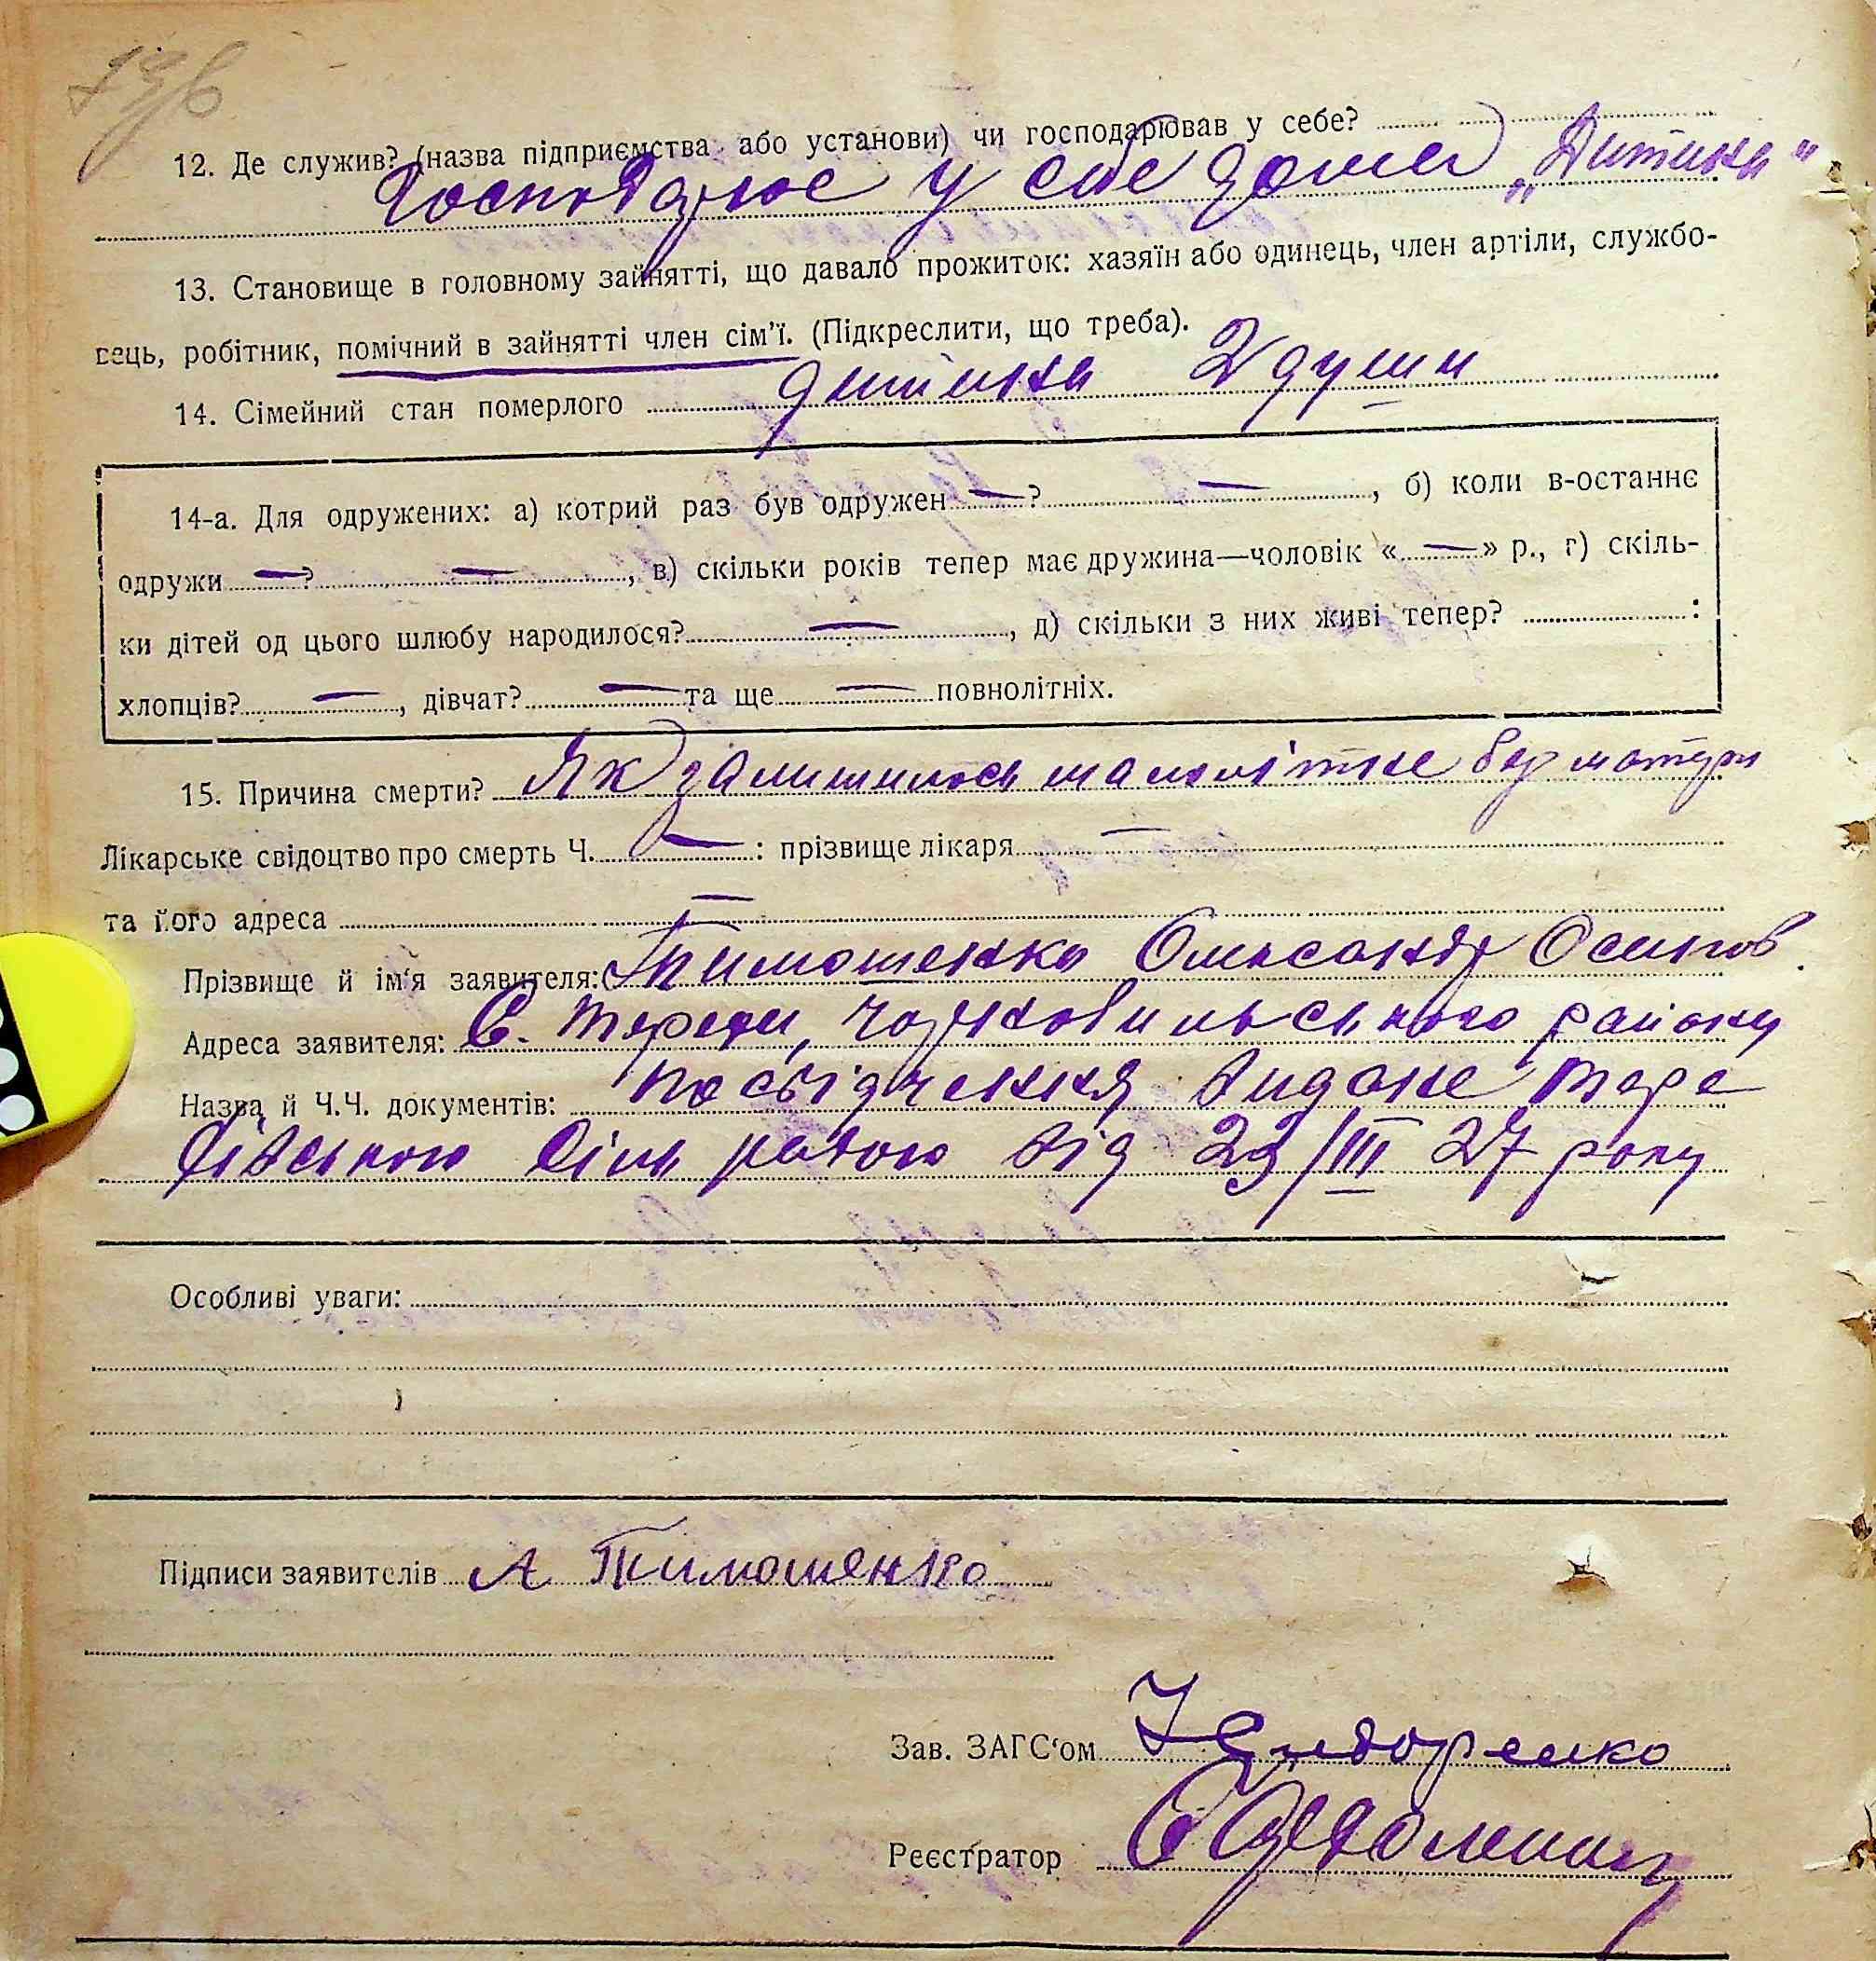 12. Де служив? (назва підприємства або установи) чи господарював у себе?
Господарює у себе дома „Дитина"
13. Становище в головному зайнятті, що давало прожиток: хазяїн або одинець, член артіли, службо-
вець, робітник, помічний в зайнятті член сім'ї. (Підкреслити, що треба).
14. Сімейний стан померлого дитина 2 души
14-а. Для одружених: а) котрий раз був одружен — ? —, б) коли в-останнє
одружи — ? —, в) скільки років тепер має дружина—чоловік « — » р., г) скіль-
ки дітей од цього шлюбу народилося? —, д) скільки з них живі тепер? :
хлопців? —, дівчат? — та ще — повнолітніх.
15. Причина смерти? Як залишилось малолітнє без матери
Лікарське свідоцтво про смерть Ч. — : прізвище лікаря —
та його адреса —
Прізвище й ім'я заявителя: Тимошенко Олександр Осипов.
Адреса заявителя: С. району
Назва й Ч.Ч. документів: посвідчення видане
Сіль радою від 23/III 27 року
Особливі уваги:
Підписи заявителів А Тимошенко
Зав. ЗАГС'ом
Реєстратор